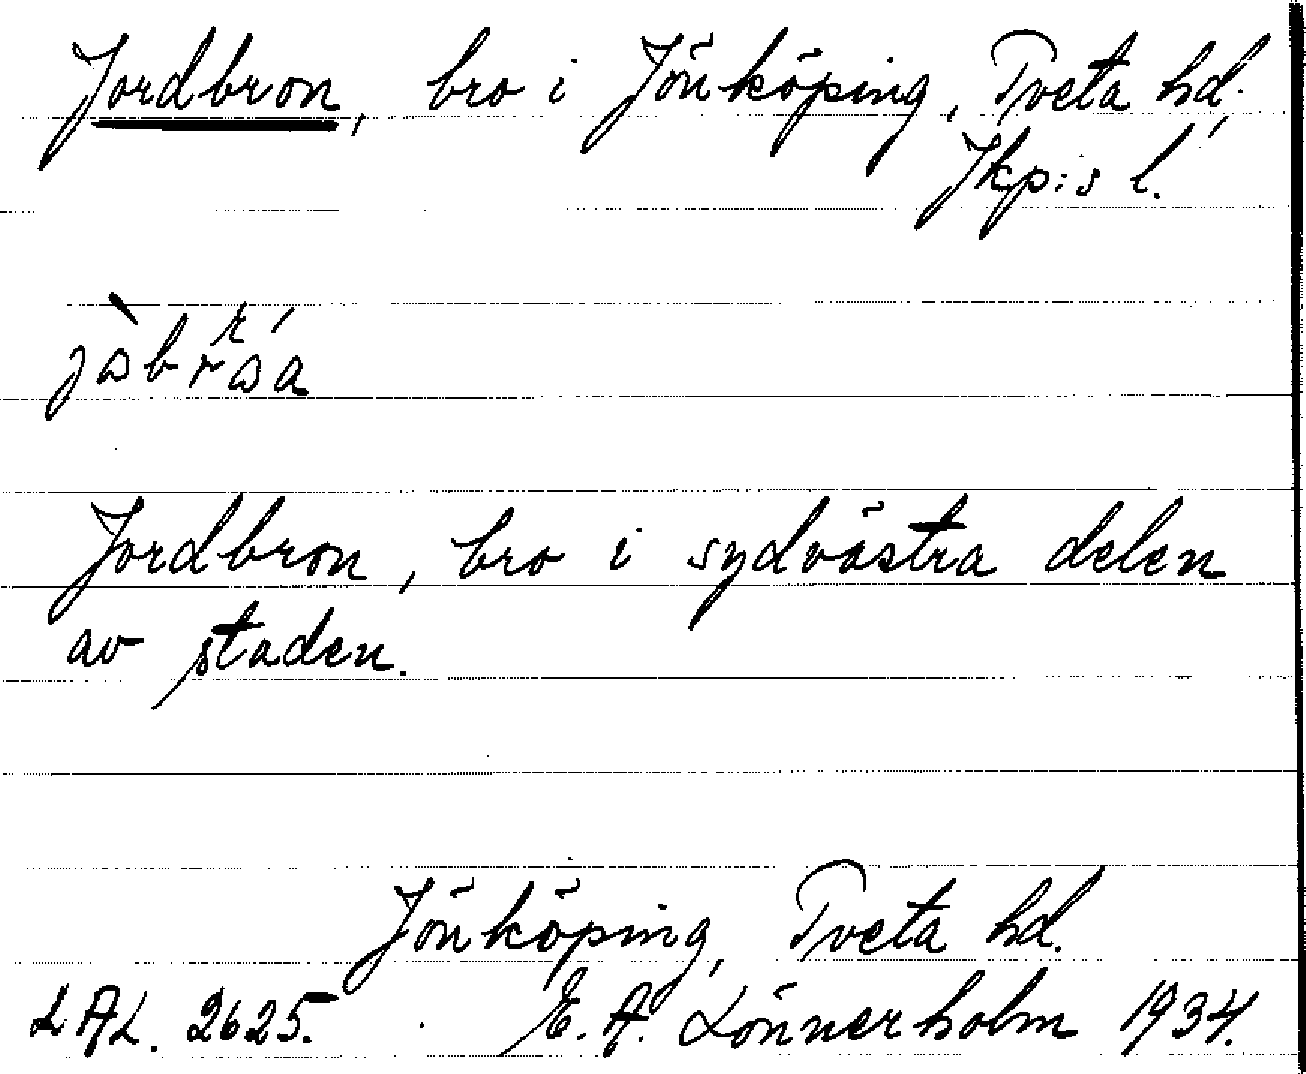 Jordbron, bro i Jönköping, Tveta hd.,
Jkp:s l.
Jordbron, bro i sydvästra delen
av staden.
Jönköping, Tveta hd.
LAL. 2625. E. A. Lönnerholm 1934.